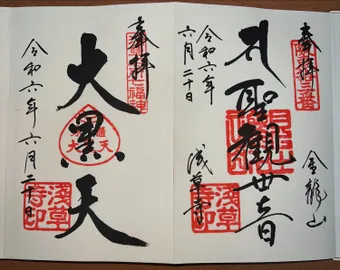 奉拝
金龍山
聖観世音
令和六年
六月二十日
浅草寺
浅草寺印
奉拝
七福神
大黒天
浅草寺印
令和六年六月二十日